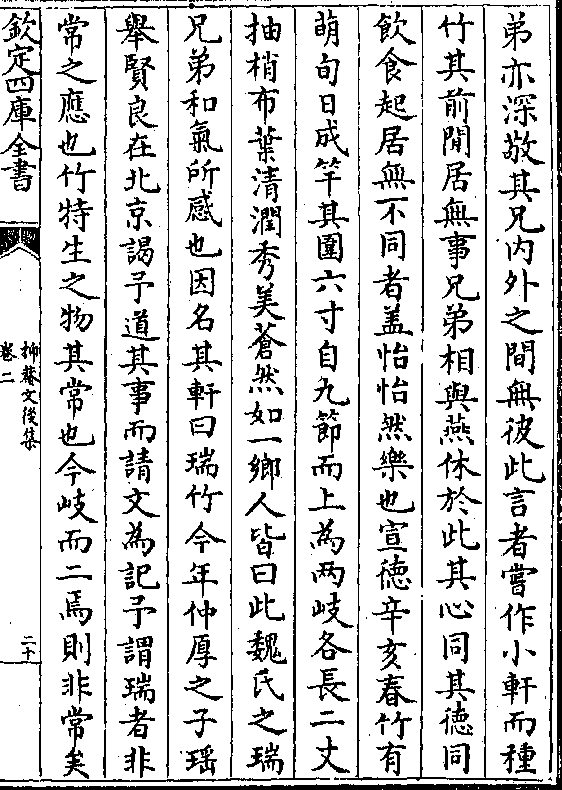 弟亦深敬其兄内外之間無彼此言者嘗作小軒而種
竹其前閒居無事兄弟相與燕休於此其心同其徳同
飲食起居無不同者盖怡怡然樂也宣徳辛亥春竹有
萌句日成竿其圍六寸自九節而上為两岐各長二丈
抽梢布葉清潤秀美蒼然如一鄉人皆曰此魏氏之瑞
兄弟和氣所感也因名其軒曰瑞竹今年仲厚之子瑶
舉賢良在北京謁予道其事而請文為記予謂瑞者非
常之應也竹特生之物其常也今岐而二焉則非常矣
欽定四庫全書
抑菴文後集
卷二
二十